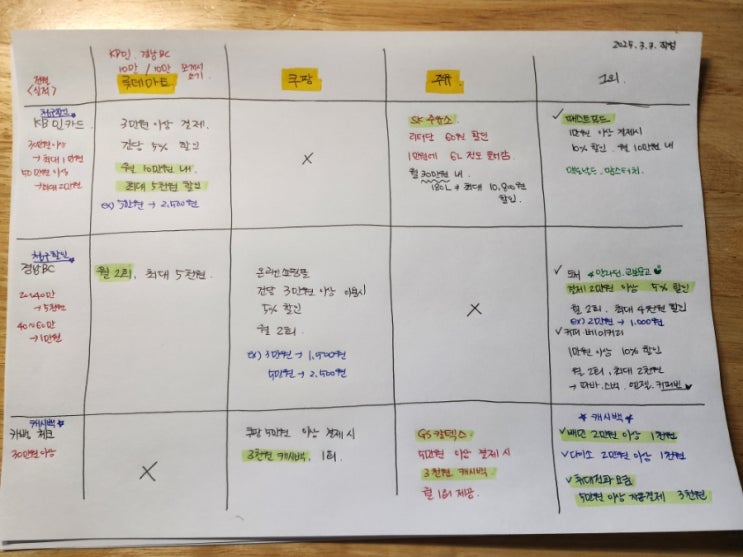 2025. 3. 7. 작성
전월
<실적>
KB민. 경남BC
10만 / 10만
롯데마트
쿠팡
주유
그외
청구할인
KB 민카드
30만원 이상
→ 최대 1만원
50만원 이상
→ 최대 2만원
3만원 이상 결제.
건당 5% 할인
월 10만원 내
최대 5천원 할인
ex) 5만원 → 2,500원
X
SK 주유소
리터당 60원 할인
1만원에 6L 정도
월 30만원 내.
180L → 최대 10,800원
할인.
✓ 패스트푸드
1만원 이상 결제시
10% 할인. 월 10만원 내
맥도날드. 맘스터치.
청구할인
경남BC
20~40만
→ 5천원
40~60만
→ 1만원
월 2회, 최대 5천원.
온라인쇼핑몰
건당 3만원 이상 이용시
5% 할인
월 2회.
ex) 3만원 → 1,500원
5만원 → 2,500원
X
✓ 도서 교보문고
결제 2만원 이상 5% 할인
월 2회. 최대 4천원 할인
ex) 2만원 → 1,000원
✓ 커피 베이커리
1만원 이상 10% 할인
월 2회, 최대 2천원
→ 파바. 스벅. 엔젤. 커피빈
캐시백
카뱅 체크
30만원 이상
X
쿠팡 5만원 이상 결제 시
3천원 캐시백. 1회.
GS칼텍스
5만원 이상 결제 시
3천원 캐시백
월 1회 제공.
* 캐시백 *
✓ 배민 2만원 이상 1천원
✓ 다이소 2만원 이상 1천원
✓ 휴대전화 요금
5만원 이상 자동결제 3천원